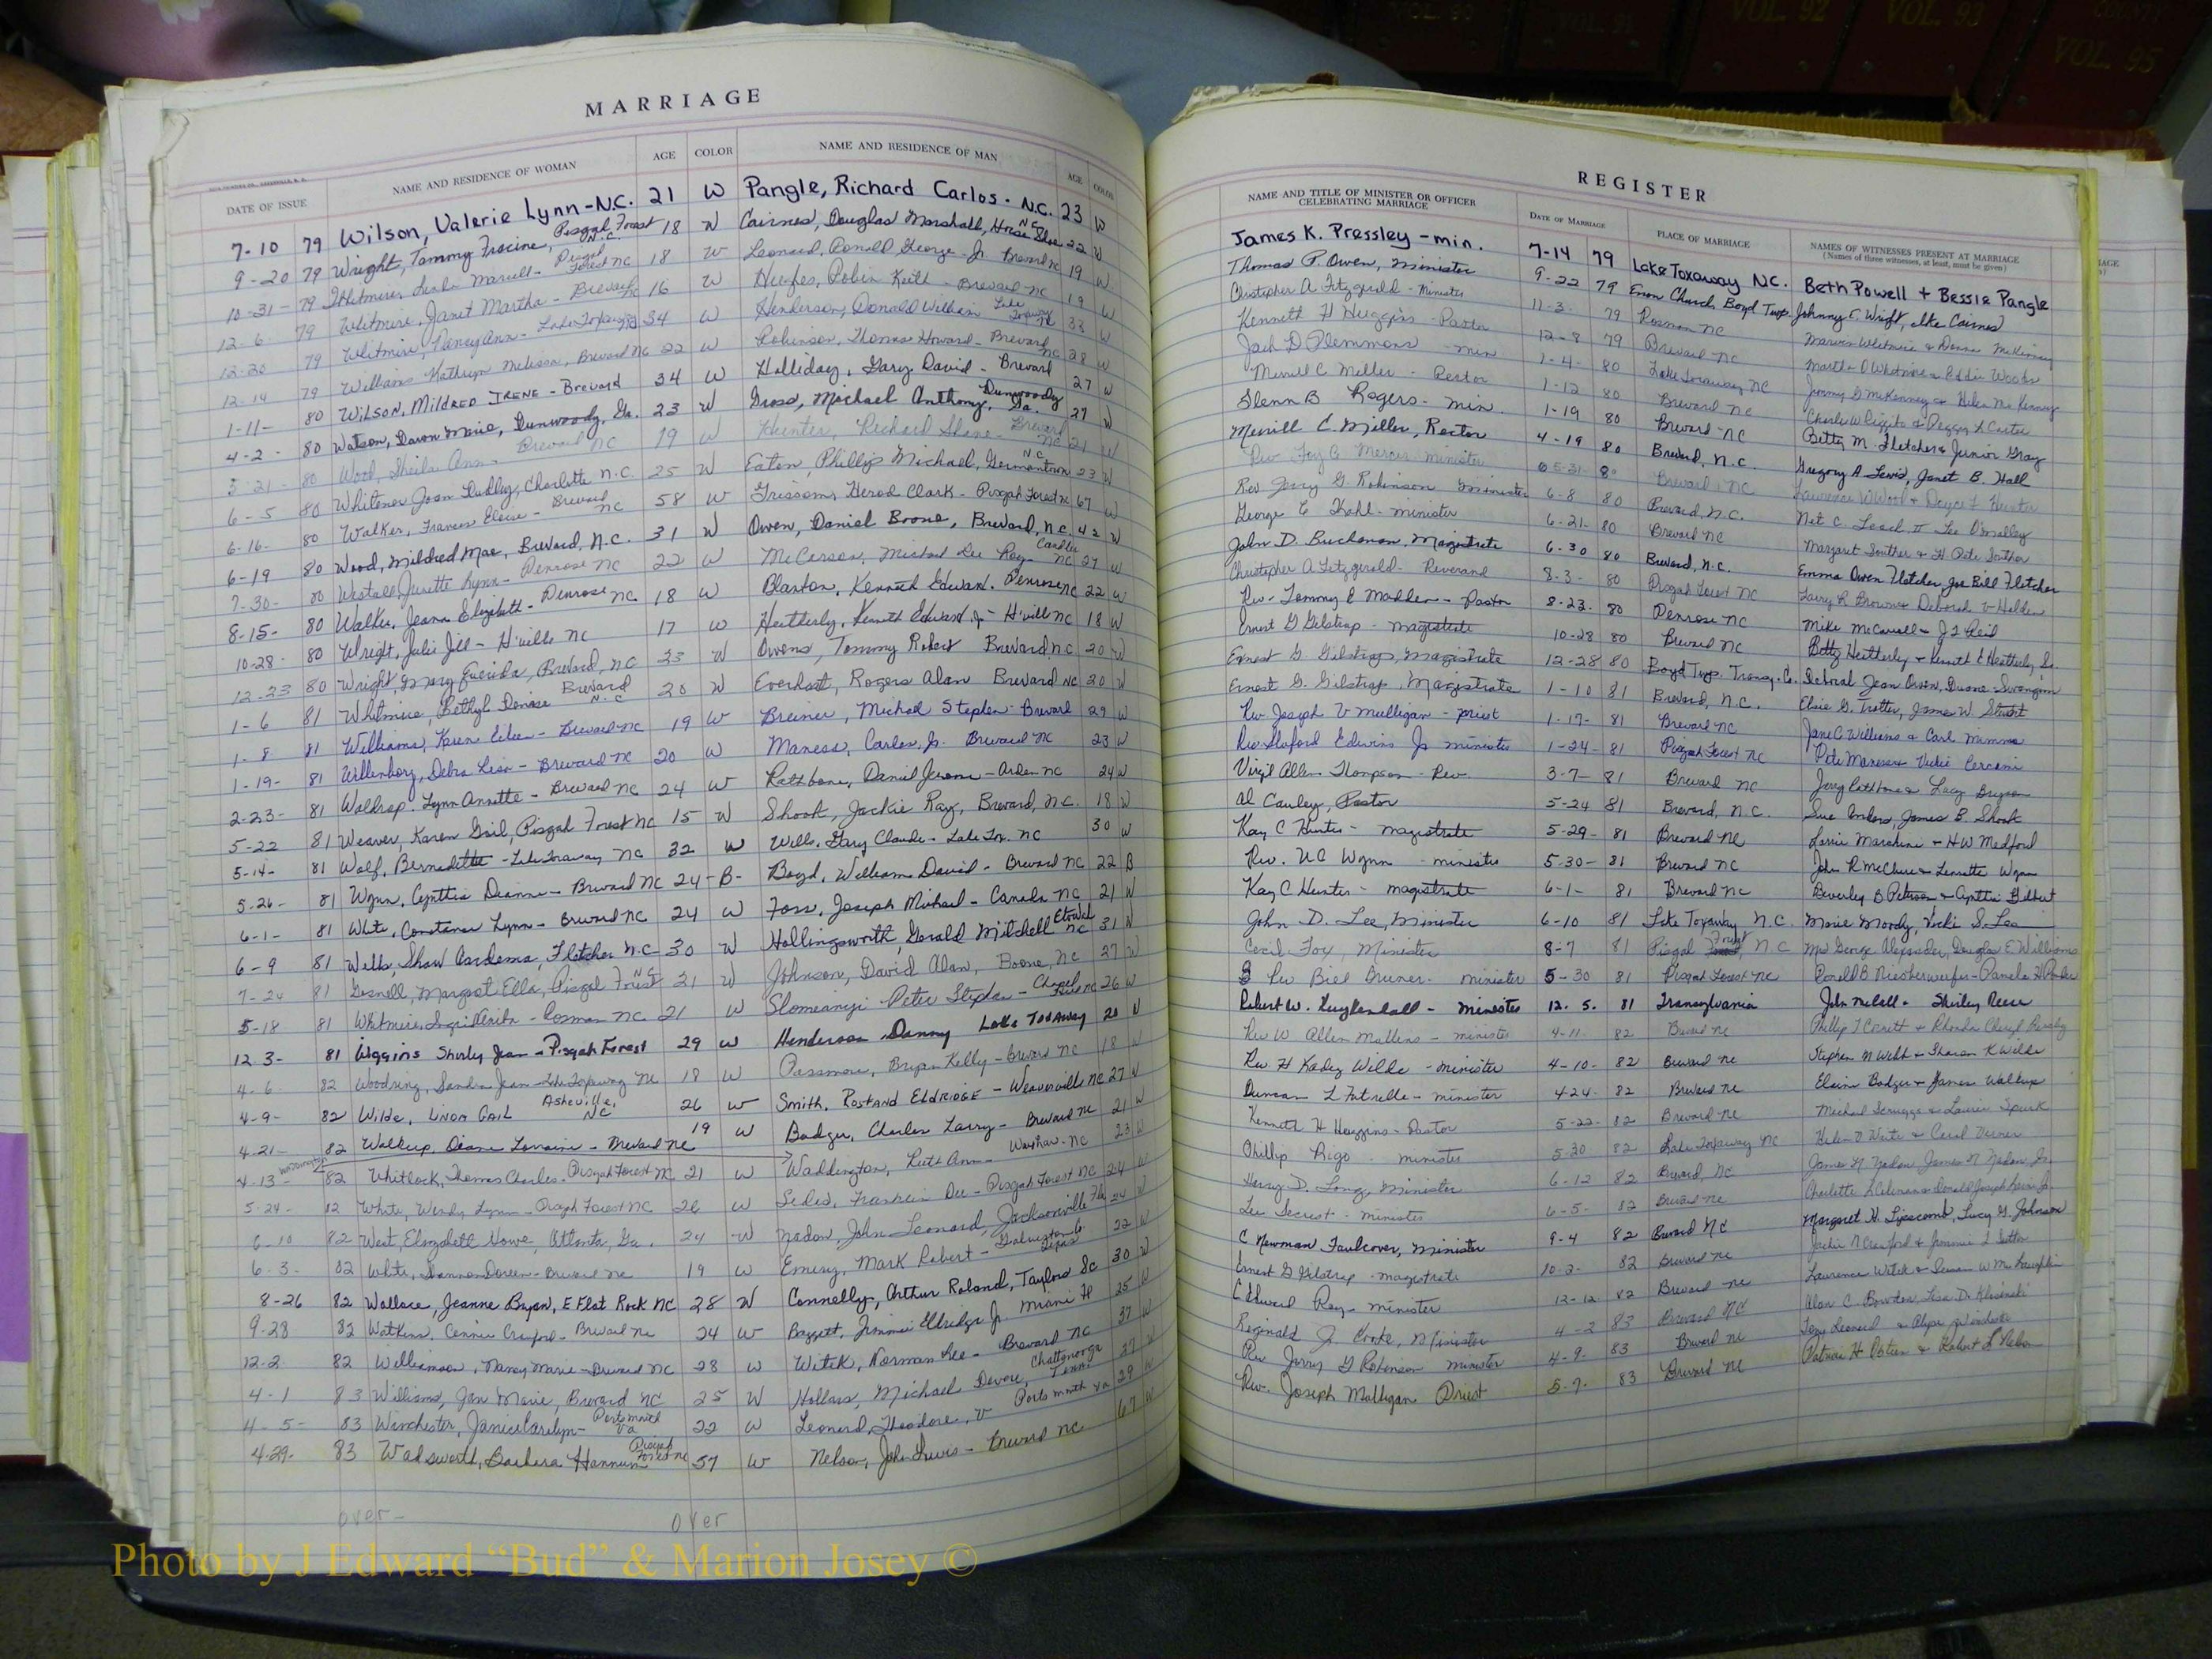 VOL. 90 VOL. 91 VOL. 92 VOL. 93 VOL. 95
MARRIAGE
DATE OF ISSUE NAME AND RESIDENCE OF WOMAN AGE COLOR NAME AND RESIDENCE OF MAN AGE COLOR
7-10 79 Wilson, Valerie Lynn - N.C. 21 W Pangle, Richard Carlos - N.C. 23 W
9-20 79 Wright, Tammy Francine, Pisgah Forest N.C. 18 W Cairnes, Douglas Marshall, Horse Shoe N.C. 22 W
10-31- 79 Whitmire, Marcell - Pisgah Forest NC 18 W Leonard, Ronald George Jr. Brevard NC 19 W
12-6- 79 Whitmire, Janet Martha - Brevard NC 16 W Hughes, Robin Keith - Brevard NC 19 W
12-20 79 Whitmire, Nancy Ann - Lake Toxaway NC 34 W Henderson, Donald William Lake Toxaway NC 33 W
12-14 79 Williams Kathryn Melissa, Brevard NC 22 W Robinson, Thomas Howard - Brevard NC 28 W
1-11- 80 Wilson, Mildred Irene - Brevard 34 W Holliday, Gary David - Brevard 27 W
4-2- 80 Watson, Dawn Marie, Dunwoody, Ga. 23 W Gross, Michael Anthony, Dunwoody Ga. 27 W
5-21- 80 Wood, Sheila Ann Brevard NC 19 W Hunter, Richard Shane - Brevard NC 21 W
6-5 80 Whitener Joan Dudley, Charlotte N.C. 25 W Eaton, Phillip Michael, Germantown N.C. 23 W
6-16- 80 Walker, Frances Eloise - Brevard NC 58 W Grissom, Herod Clark - Pisgah Forest NC 67 W
6-19 80 Wood, Mildred Mae, Brevard, N.C. 31 W Owen, Daniel Boone, Brevard, N.C. 42 W
7-30- 80 Westall, Lynn - Penrose NC 22 W McCarson, Michael Lee Roy - Candler NC 27 W
8-15- 80 Walker, Jeana Elizabeth - Penrose NC. 18 W Blanton, Kenneth Edward. Penrose NC 22 W
10-28- 80 Wright, Julie Jill - H'ville NC 17 W Heatherly, Kenneth Edward Jr - H'ville NC 18 W
12-23 80 Wright, Brevard, NC 23 W Owens, Tommy Robert Brevard NC 20 W
1-6 81 Whitmire, Bethyl Denise Brevard N.C 20 W Everhart, Rogers Alan Brevard NC 20 W
1-8 81 Williams, Karen Eileen - Brevard NC 19 W Breiner, Michael Stephen - Brevard 29 W
1-19- 81 Willenborg, Debra Lisa - Brevard NC 20 W Maness, Carlos, Jr. Brevard NC 23 W
2-23- 81 Waldrop, Lynn Annette - Brevard NC 24 W Rathbone, Daniel Jerome - Arden NC 24 W
5-22 81 Weaver, Karen Gail, Pisgah Forest NC 15 W Shook, Jackie Ray, Brevard, NC. 18 W
5-14- 81 Wolf, Bernadette - Lake Toxaway NC 32 W Wills, Gary Claude - Lake Tox. NC 30 W
5-26- 81 Wynn, Cynthia Dianne - Brevard NC 24 - B - Boyd, William David - Brevard NC 22 B
6-1- 81 White, Constance Lynn - Brevard NC 24 W Foss, Joseph Michael - Canada NC 21 W
6-9 81 Wells, Shaw Cardema, Fletcher N.C 30 W Hollingsworth, Gerald Mitchell Etowah NC 31 W
7-24 81 Gosnell, Margaret Ella, Pisgah Forest N.C. 21 W Johnson, David Alan, Boone, NC 27 W
5-18 81 Whitmire, - Rosman NC 21 W Peter Stephen - Chapel Hill NC 26 W
12-3- 81 Wiggins Shirley Jean - Pisgah Forest 29 W Henderson Danny Lake Toxaway 20 W
4-6 82 Woodring, Sandra Jean - Lake Toxaway NC 18 W Passmore, Bryan Kelly - Brevard NC 18 W
4-9- 82 Wilde, Linda Gail Asheville, NC 26 W Smith, Rostand Eldridge - Weaverville NC 27 W
4-21- 82 Walkup, Diane Lorraine - Brevard NC 19 W Badger, Charles Larry - Brevard NC 21 W
4-13- 82 Whitlock, Thomas Charles - Pisgah Forest NC 21 W Waddington, Ruth Ann - Waxhaw - NC 23 W
5-24- 82 White, Wendy Lynn - Pisgah Forest NC 26 W Sides, Franklin Dee - Pisgah Forest NC 24 W
6-10 82 West, Elizabeth Howe, Atlanta, Ga. 24 W Nadon, John Leonard, Jacksonville Fla 24 W
6-3- 82 White, Shannon Doreen - Brevard NC 19 W Emery, Mark Robert - Galveston Texas 22 W
8-26 82 Wallace, Jeanne Bryan, E Flat Rock NC 28 W Connelly, Arthur Roland, Taylors SC 30 W
9-28 82 Watkins, Connie Crawford - Brevard NC 24 W Baggett, Jimmie Eldridge Jr. Miami Fl 25 W
12-2 82 Williamson, Nancy Marie - Brevard NC 28 W Witek, Norman Lee - Brevard NC 37 W
4-1 83 Williams, Jan Marie, Brevard NC 25 W Hollars, Michael Devore, Chattanooga Tenn 27 W
4-5- 83 Winchester, Janice Carolyn - Portsmouth Va 22 W Leonard, Theodore, V Portsmouth Va 29 W
4-29- 83 Wadsworth, Barbara Hannum Pisgah Forest NC 57 W Nelson, John Lewis - Brevard NC 67 W
over - over
REGISTER
NAME AND TITLE OF MINISTER OR OFFICER CELEBRATING MARRIAGE DATE OF MARRIAGE PLACE OF MARRIAGE NAMES OF WITNESSES PRESENT AT MARRIAGE
(Names of three witnesses, at least, must be given)
James K. Pressley - min. 7-14 79 Lake Toxaway N.C. Beth Powell + Bessie Pangle
Thomas P. Owen, Minister 9-22 79 Enon Church, Boyd Twp. Johnny C. Wright, Cairnes
Christopher A Fitzgerald - Minister 11-3- 79 Rosman NC Marvin Whitmire & Donna McKinney
Kenneth H Huggins - Pastor 12-8 79 Brevard - NC Martha O Whitmire & Eddie Woods
Jack D Plemmons - min 1-4- 80 Lake Toxaway NC Jimmy G McKinney & Helen McKinney
Merrill C Miller - Rector 1-12 80 Brevard NC Charles W & Peggy L Carter
Glenn B Rogers - min. 1-19 80 Brevard - NC Betty M. Fletcher & Junior Gray
Merrill C. Miller, Rector 4-19 80 Brevard, N.C. Gregory A Lewis, Janet B. Hall
Rev Foy G Mercer - minister 05-31- 80 Brevard NC Lawrence W Wood & Hunter
Rev Jerry G. Robinson Minister 6-8 80 Brevard, N.C. Nat C. II O'Malley
George C Kahl - minister 6-21- 80 Brevard NC Margaret Souther & H Pete Souther
John D. Buchanan, Magistrate 6-30 80 Brevard, N.C. Emma Owen Fletcher, Joe Bill Fletcher
Christopher A Fitzgerald - Reverand 8-3- 80 Pisgah Forest NC Larry R Brown & Deborah V Holden
Rev - Tommy E Madden - Pastor 8-23- 80 Penrose NC Mike McCarroll & J L Reid
Ernest G Gilstrap - magistrate 10-28 80 Brevard NC Betty Heatherly & Kenneth E Heatherly Sr.
Ernest G. Gilstrap, Magistrate 12-28 80 Boyd Twp. Transy. Co. Debrial Jean Owen, Duane Swangim
Ernest G. Gilstrap, Magistrate 1-10 81 Brevard, N.C. Elsie G. Trotter, James W Stuart
Rev Joseph V Mulligan - priest 1-17- 81 Brevard NC Jane C Williams & Carl Mimms
Rev. Edwins Jr minister 1-24- 81 Pisgah Forest NC Pete Maness & Vickie
Virgil Allen Thompson - Rev. 3-7- 81 Brevard NC Jerry Rathbone & Lacy Bryson
Al Cauley, Pastor 5-24 81 Brevard, N.C. Sue Enders, James B. Shook
Kay C Hunter - magistrate 5-29- 81 Brevard NC & H W Medford
Rev. U C Wynn - minister 5-30- 81 Brevard NC John R McClure & Wynn
Kay C Hunter - magistrate 6-1- 81 Brevard NC Beverley B Peterson & Cynthia Gilbert
John D. Lee, Minister 6-10 81 Lake Toxaway N.C. Marie Moody, Vicki S. Lee
Cecil Fox, Minister 8-7 81 Pisgah Forest, N C Mrs George Alexander, Douglas E. Williams
Rev Bill Bruner - minister 5-30 81 Pisgah Forest NC
Robert W. Kuykendall - Minister 12. 5. 81 Transylvania John McCall - Shirley Reece
Rev W Allen Mullins - minister 4-11 82 Brevard NC
Rev. H Kadey Wilde - minister 4-10- 82 Brevard NC Stephen N Webb & Sharon K Wilde
Duncan L Futrelle - minister 4-24- 82 Brevard NC Elaine Badger & James Walkup
Kenneth H Huggins - Pastor 5-22- 82 Brevard NC Michael Scruggs & Laurie Spurk
Phillip Rigo - minister 5-30 82 Lake Toxaway NC
Harry D. Long, Minister 6-12 82 Brevard, NC James H. Nadon, James N Nadon, Jr.
Lee Secrest - minister 6-5- 82 Brevard NC
C. Newman Faulconer, Minister 9-4 82 Brevard NC Margaret H. Lipscomb, Lucy G. Johnson
Ernest G Gilstrap - magistrate 10-2- 82 Brevard NC
C Edward Roy - minister 12-12 82 Brevard NC Lawrence Witek & Susan W McLaughlin
Reginald J. Cooke, Minister 4-2 83 Brevard NC Alan C. Bowden, Lisa D.
Rev Jerry G Robinson minister 4-9- 83 Brevard NC
Rev. Joseph Mulligan Priest 5-7- 83 Brevard NC
Photo by J Edward “Bud” & Marion Josey ©